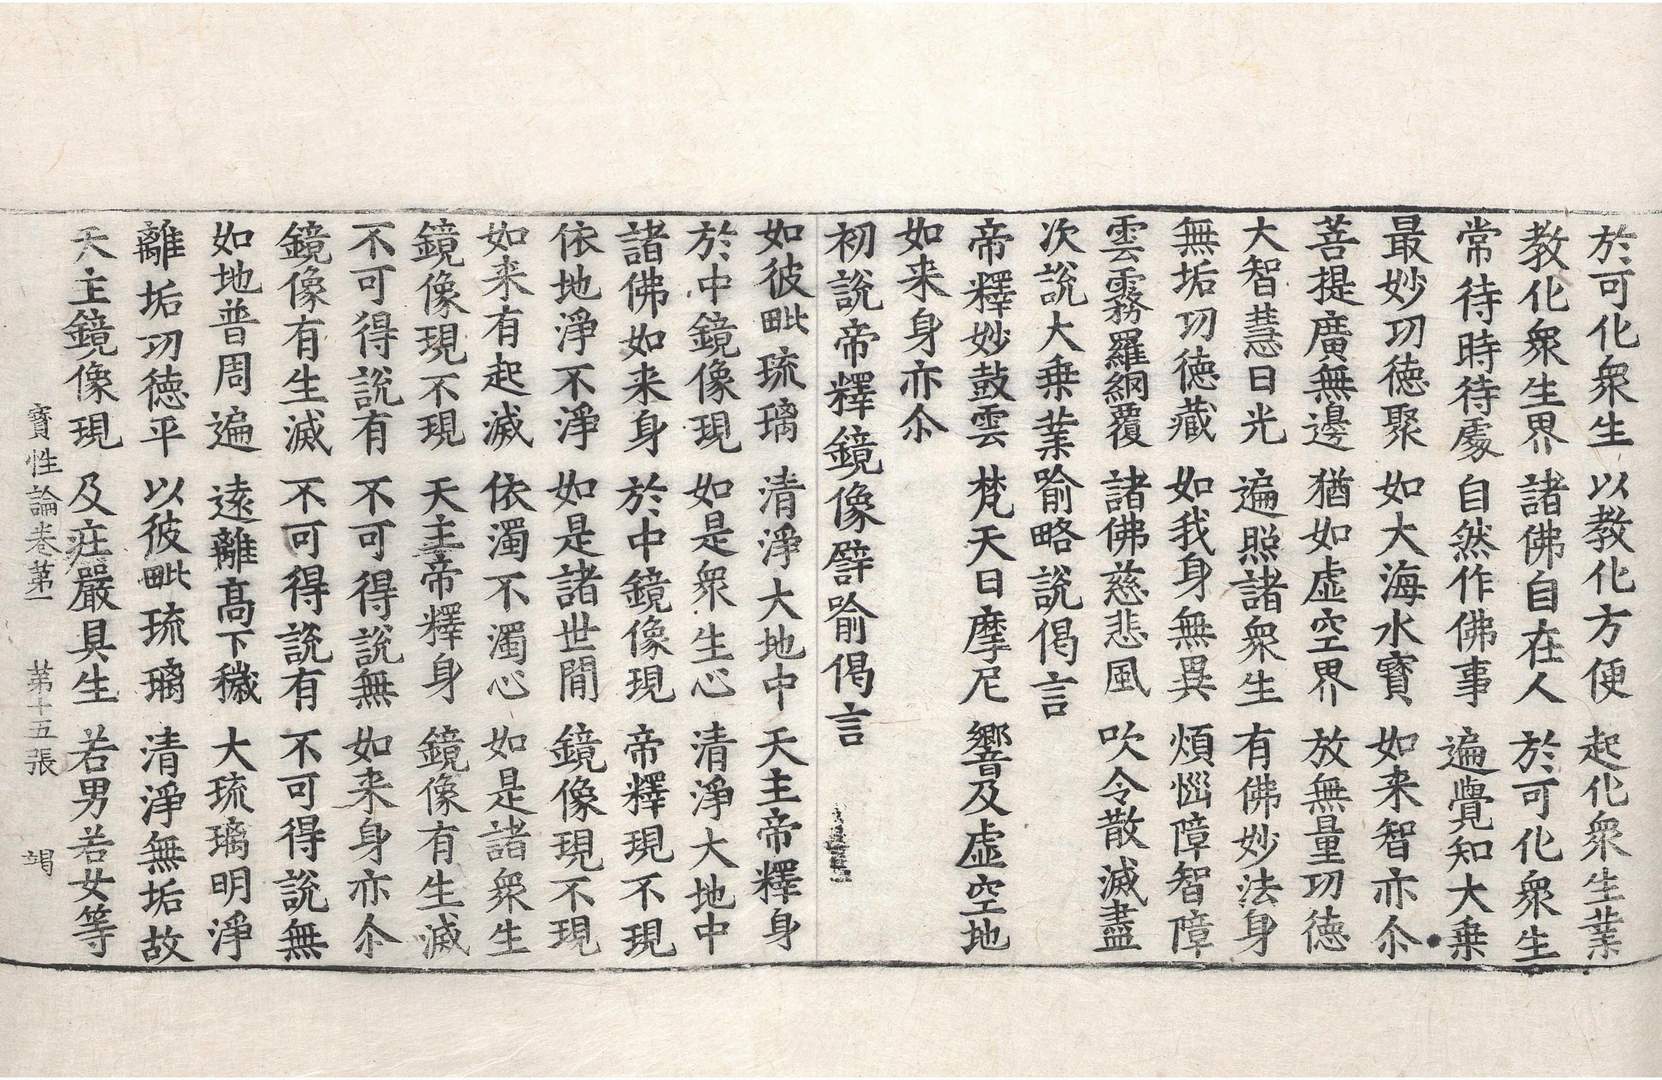 於可化衆生　以教化方便　起化衆生業
教化衆生界　諸佛自在人　於可化衆生
常待時待處　自然作佛事　遍覺知大乗
最妙功徳聚　如大海水寳　如来智亦尒
菩提廣無邊　猶如虚空界　放無量功徳
大智慧日光　遍照諸衆生　有佛妙法身
無垢功徳藏　如我身無異　煩惱障智障
雲霧羅網覆　諸佛慈悲風　吹令散滅盡
次說大乗業喻略說偈言
帝釋妙鼓雲　梵天日摩尼　響及虚空地
如来身亦尒
初說帝釋鏡像譬喻偈言
如彼毗琉璃　清淨大地中　天主帝釋身
於中鏡像現　如是衆生心　清淨大地中
諸佛如来身　於中鏡像現　帝釋現不現
依地淨不淨　如是諸世間　鏡像現不現
如来有起滅　依濁不濁心　如是諸衆生
鏡像現不現　天主帝釋身　鏡像有生滅
不可得說有　不可得說無　如来身亦尒
鏡像有生滅　不可得說有　不可得說無
如地普周遍　遠離髙下穢　大琉璃明淨
離垢功徳平　以彼毗琉璃　清淨無垢故
天主鏡像現　及莊嚴具生　若男若女等
寳性論卷第一　第十五張　竭